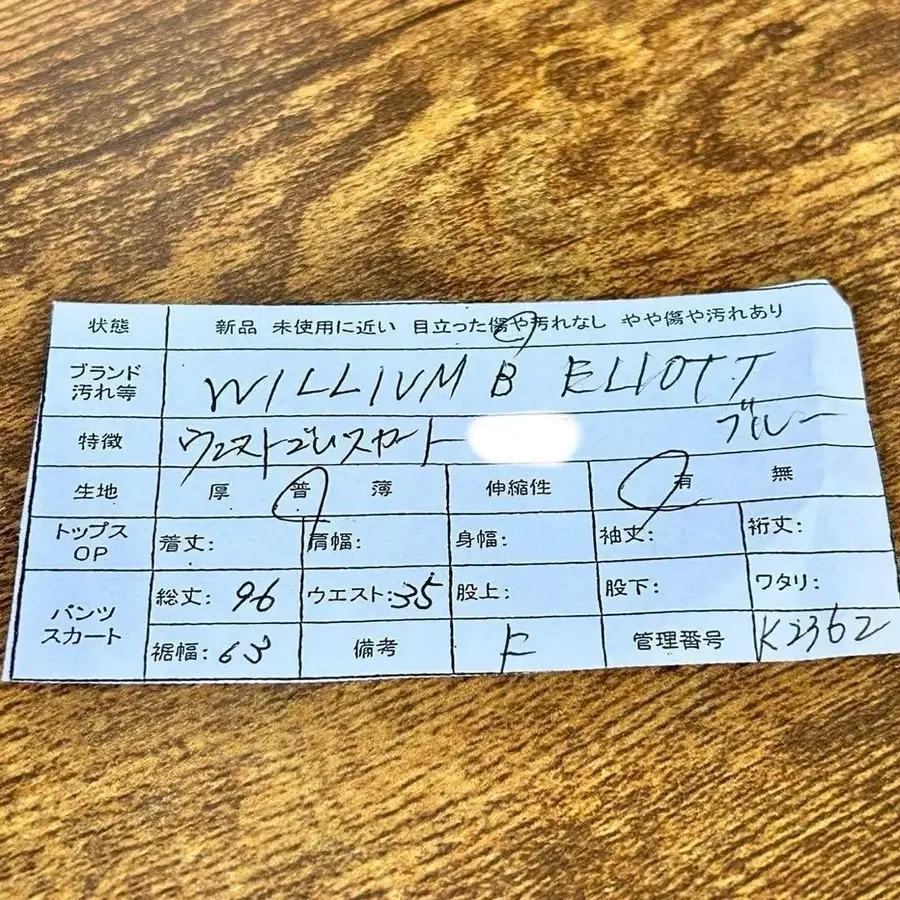 状態 新品 未使用に近い 目立った傷や汚れなし やや傷や汚れあり
ブランド 汚れ等 WILLIVM B ELIOTT
特徴 ウエストゴムスカート ブルー
生地 厚 普 薄 伸縮性 有 無
トップス OP 着丈: 肩幅: 身幅: 袖丈: 裄丈:
パンツ スカート 総丈: 96 ウエスト: 35 股上: 股下: ワタリ:
裾幅: 63 備考 F 管理番号 K2362